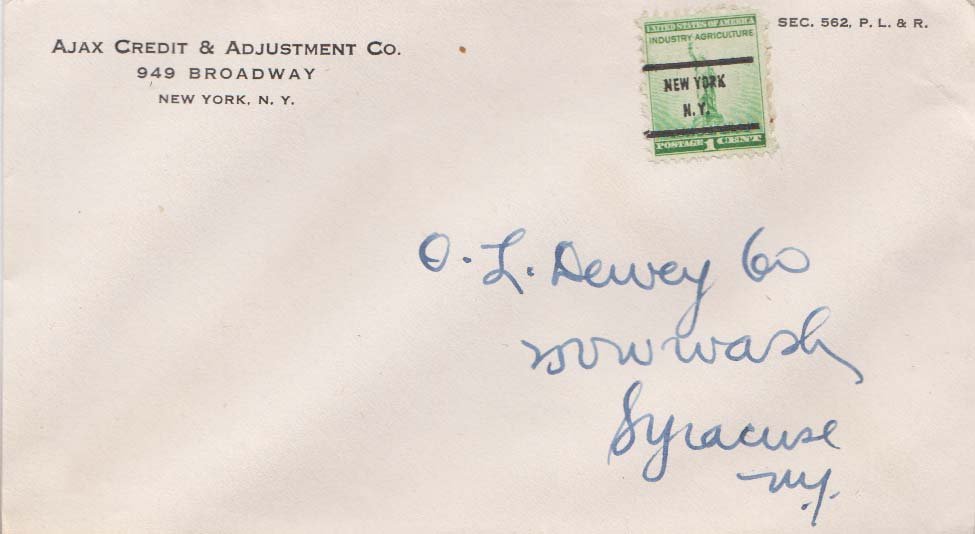 AJAX CREDIT & ADJUSTMENT CO.
949 BROADWAY
NEW YORK, N. Y.
SEC. 562, P. L. & R.
UNITED STATES OF AMERICA
INDUSTRY AGRICULTURE
NEW YORK
N.Y.
POSTAGE 1 CENT
O. L. Dewey Co
W wash
Syracuse
N.Y.